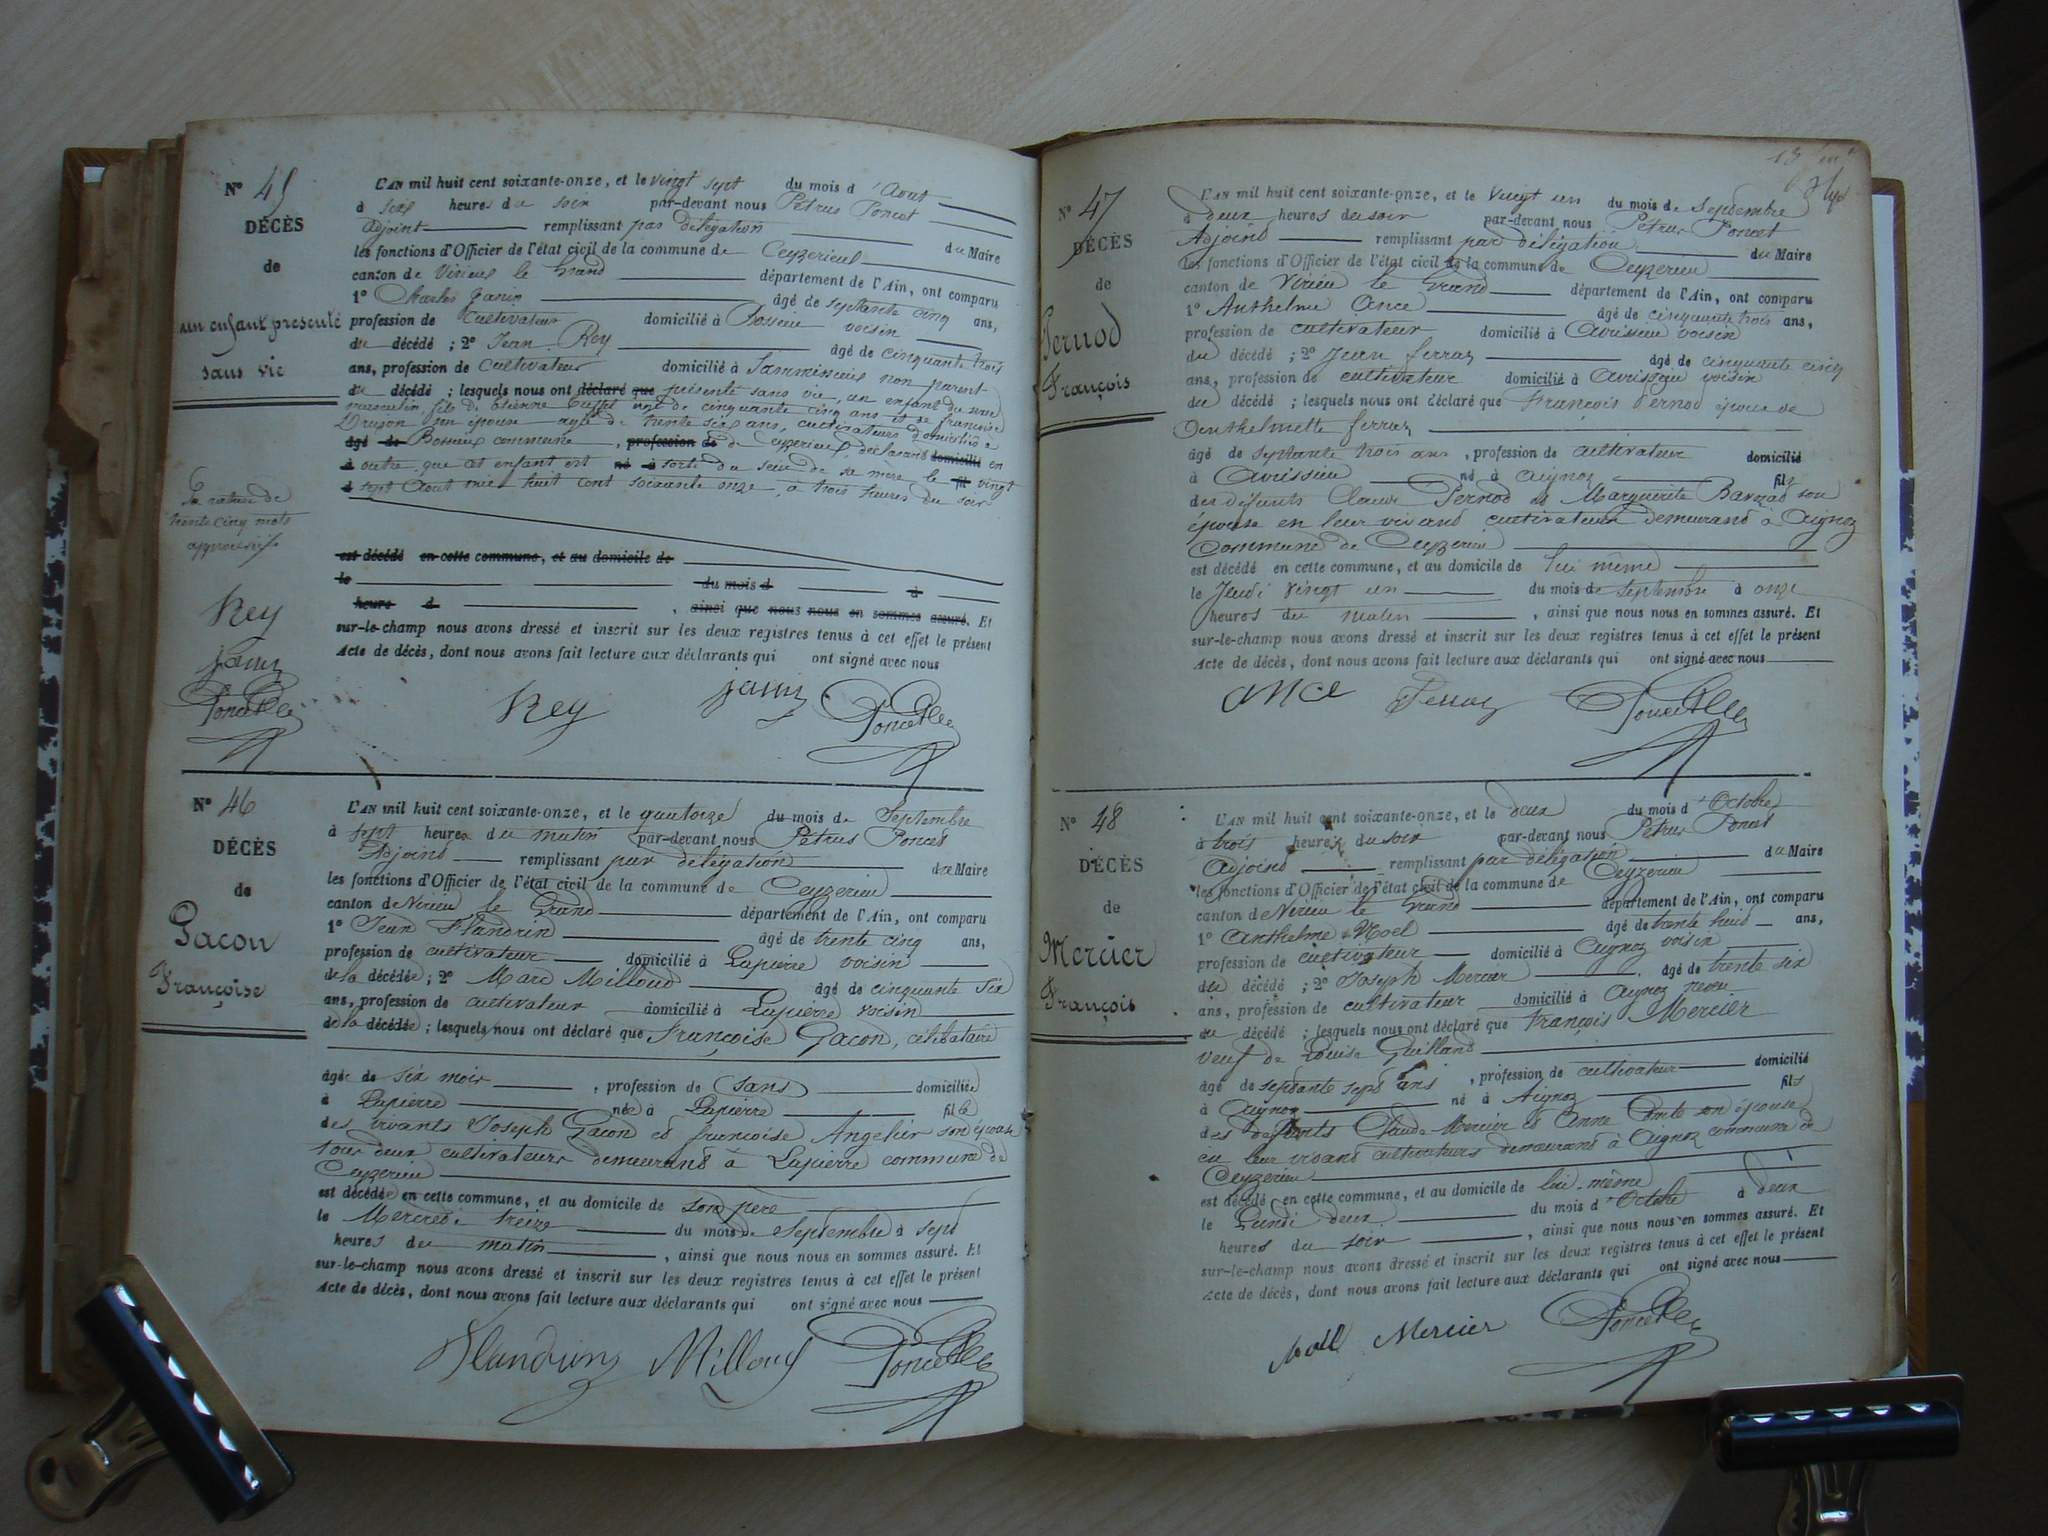 N° 45
DÉCÈS
de
un enfant presenté
sans vie
L'AN mil huit cent soixante-onze, et le vingt sept du mois d'Aout
à six heures du soir par-devant nous Pétrus Poncet
Adjoint remplissant par délégation
les fonctions d'Officier de l'état civil de la commune de Ceyzerieu du Maire
canton de Virieu le Grand département de l'Ain, ont comparu
1° Charles Janin âgé de septante cinq ans,
profession de Cultivateur domicilié à Bosseiu voisin
du décédé ; 2° Jean Rey âgé de cinquante trois
ans, profession de Cultivateur domicilié à non parent
du décédé ; lesquels nous ont déclaré que présenté sans vie, un enfant du sexe
masculin fils de Etienne agé de cinquante cinq ans et de françoise
son épouse agée de trente six ans, cultivateurs domiciliés à
âgé de commune , profession de de Ceyzerieu, déclarant domicilié en
à outre que cet enfant est né à sorti du sein de sa mère le fil vingt
d sept Aout mil huit cent soixante onze, à trois heures du soir
La rature de
trente cinq mots
approuvée
est décédé en cette commune, et au domicile de
le du mois d à
heure d , ainsi que nous nous en sommes assuré. Et
sur-le-champ nous avons dressé et inscrit sur les deux registres tenus à cet effet le présent
Acte de décès, dont nous avons fait lecture aux déclarants qui ont signé avec nous
Rey
Janin
Poncet
Rey Janin Poncet
N° 46
DÉCÈS
de
Gacon
Françoise
L'AN mil huit cent soixante-onze, et le quatorze du mois de Septembre
à sept heures du matin par-devant nous Pétrus Poncet
Adjoint remplissant par délégation du Maire
les fonctions d'Officier de l'état civil de la commune de Ceyzerieu
canton de Virieu le Grand département de l'Ain, ont comparu
1° Jean Flandrin âgé de trente cinq ans,
profession de cultivateur domicilié à Lapierre voisin
de la décédée ; 2° Marc Milloud âgé de cinquante six
ans, profession de cultivateur domicilié à Lapierre voisin
de la décédée ; lesquels nous ont déclaré que Françoise Gacon, célibataire
âgée de six mois , profession de sans domiciliée
à Lapierre née à Lapierre fille
des vivants Joseph Gacon et françoise Angelier son épouse
tous deux cultivateurs demeurant à Lapierre commune de
Ceyzerieu
est décédée en cette commune, et au domicile de son père
le Mercredi treize du mois de Septembre à sept
heures du matin , ainsi que nous nous en sommes assuré. Et
sur-le-champ nous avons dressé et inscrit sur les deux registres tenus à cet effet le présent
Acte de décès, dont nous avons fait lecture aux déclarants qui ont signé avec nous
Flandrin Milloud Poncet
N° 47
DÉCÈS
de
Pernod
François
L'AN mil huit cent soixante-onze, et le vingt un du mois de Septembre
à deux heures du soir par-devant nous Pétrus Poncet
Adjoint remplissant par délégation du Maire
les fonctions d'Officier de l'état civil de la commune de Ceyzerieu
canton de Virieu le Grand département de l'Ain, ont comparu
1° Anthelme Ance âgé de cinquante trois ans,
profession de cultivateur domicilié à Avrissieu voisin
du décédé ; 2° Jean ferraz âgé de cinquante cinq
ans, profession de cultivateur domicilié à Avrissieu voisin
du décédé ; lesquels nous ont déclaré que François Pernod époux de
Anthelmette ferraz
âgé de septante trois ans , profession de cultivateur domicilié
à Avrissieu né à Aignoz fils
des défunts Claude Pernod et Marguerite son
épouse en leur vivant cultivateurs demeurant à Aignoz
commune de Ceyzerieu
est décédé en cette commune, et au domicile de lui même
le Jeudi vingt un du mois de septembre à onze
heures du matin , ainsi que nous nous en sommes assuré. Et
sur-le-champ nous avons dressé et inscrit sur les deux registres tenus à cet effet le présent
Acte de décès, dont nous avons fait lecture aux déclarants qui ont signé avec nous
Ance Ferraz Poncet
N° 48
DÉCÈS
de
Mercier
François
L'AN mil huit cent soixante-onze, et le deux du mois d'Octobre
à trois heures du soir par-devant nous Pétrus Poncet
Adjoint remplissant par délégation du Maire
les fonctions d'Officier de l'état civil de la commune de Ceyzerieu
canton de Virieu le Grand département de l'Ain, ont comparu
1° Anthelme Noel âgé de trente huit ans,
profession de cultivateur domicilié à Aignoz voisin
du décédé ; 2° Joseph Mercier âgé de trente six
ans, profession de cultivateur domicilié à Aignoz neveu
du décédé ; lesquels nous ont déclaré que François Mercier
veuf de Louise Guilland
âgé de septante sept ans , profession de cultivateur domicilié
à Aignoz né à Aignoz fils
des défunts Claude Mercier et Anne Comte son épouse
en leur vivant cultivateurs demeurant à Aignoz commune de
Ceyzerieu
est décédé en cette commune, et au domicile de lui-même
le Lundi deux du mois d'Octobre à deux
heures du soir , ainsi que nous nous en sommes assuré. Et
sur-le-champ nous avons dressé et inscrit sur les deux registres tenus à cet effet le présent
Acte de décès, dont nous avons fait lecture aux déclarants qui ont signé avec nous
Noël Mercier Poncet